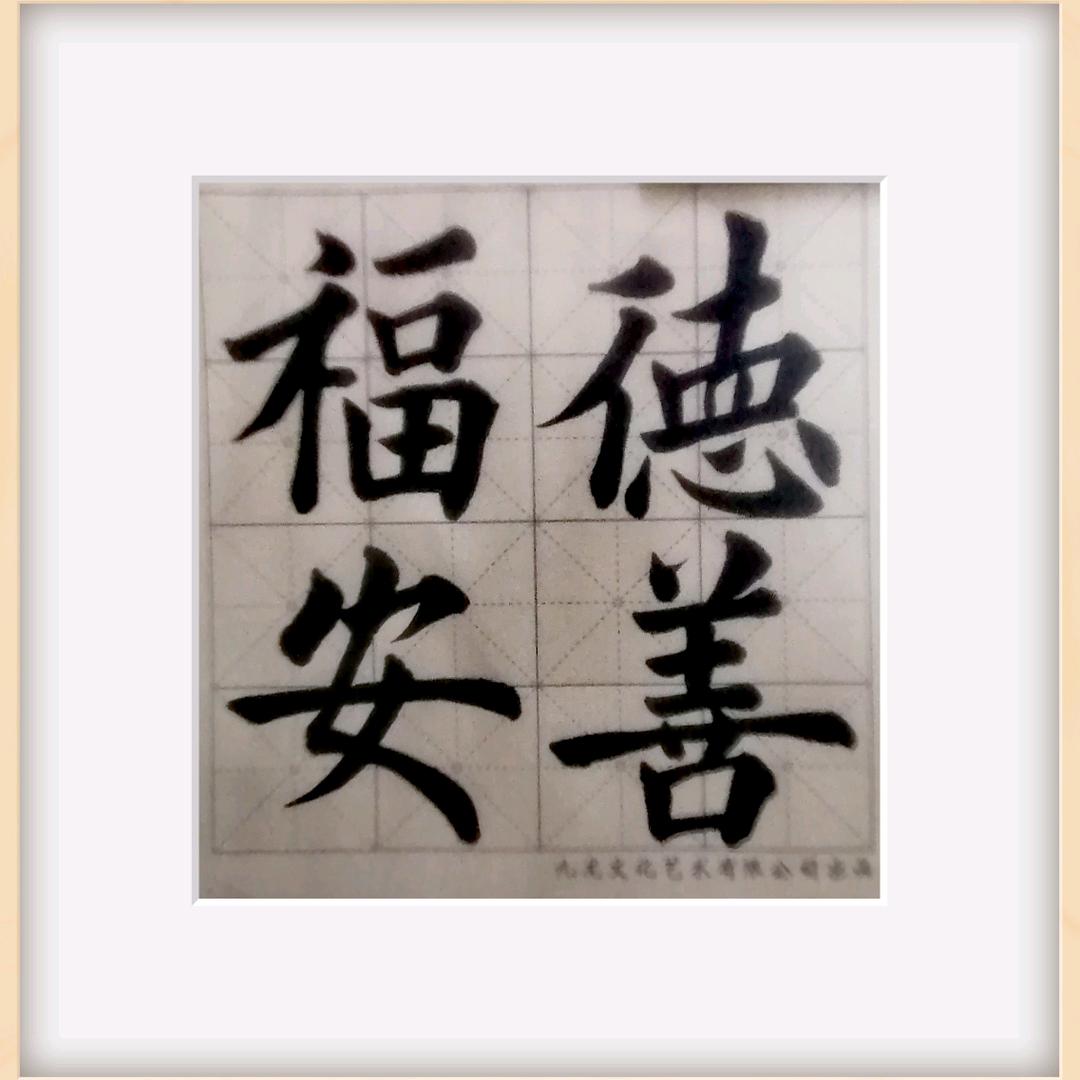 德善
福安
九龙文化艺术有限公司出品